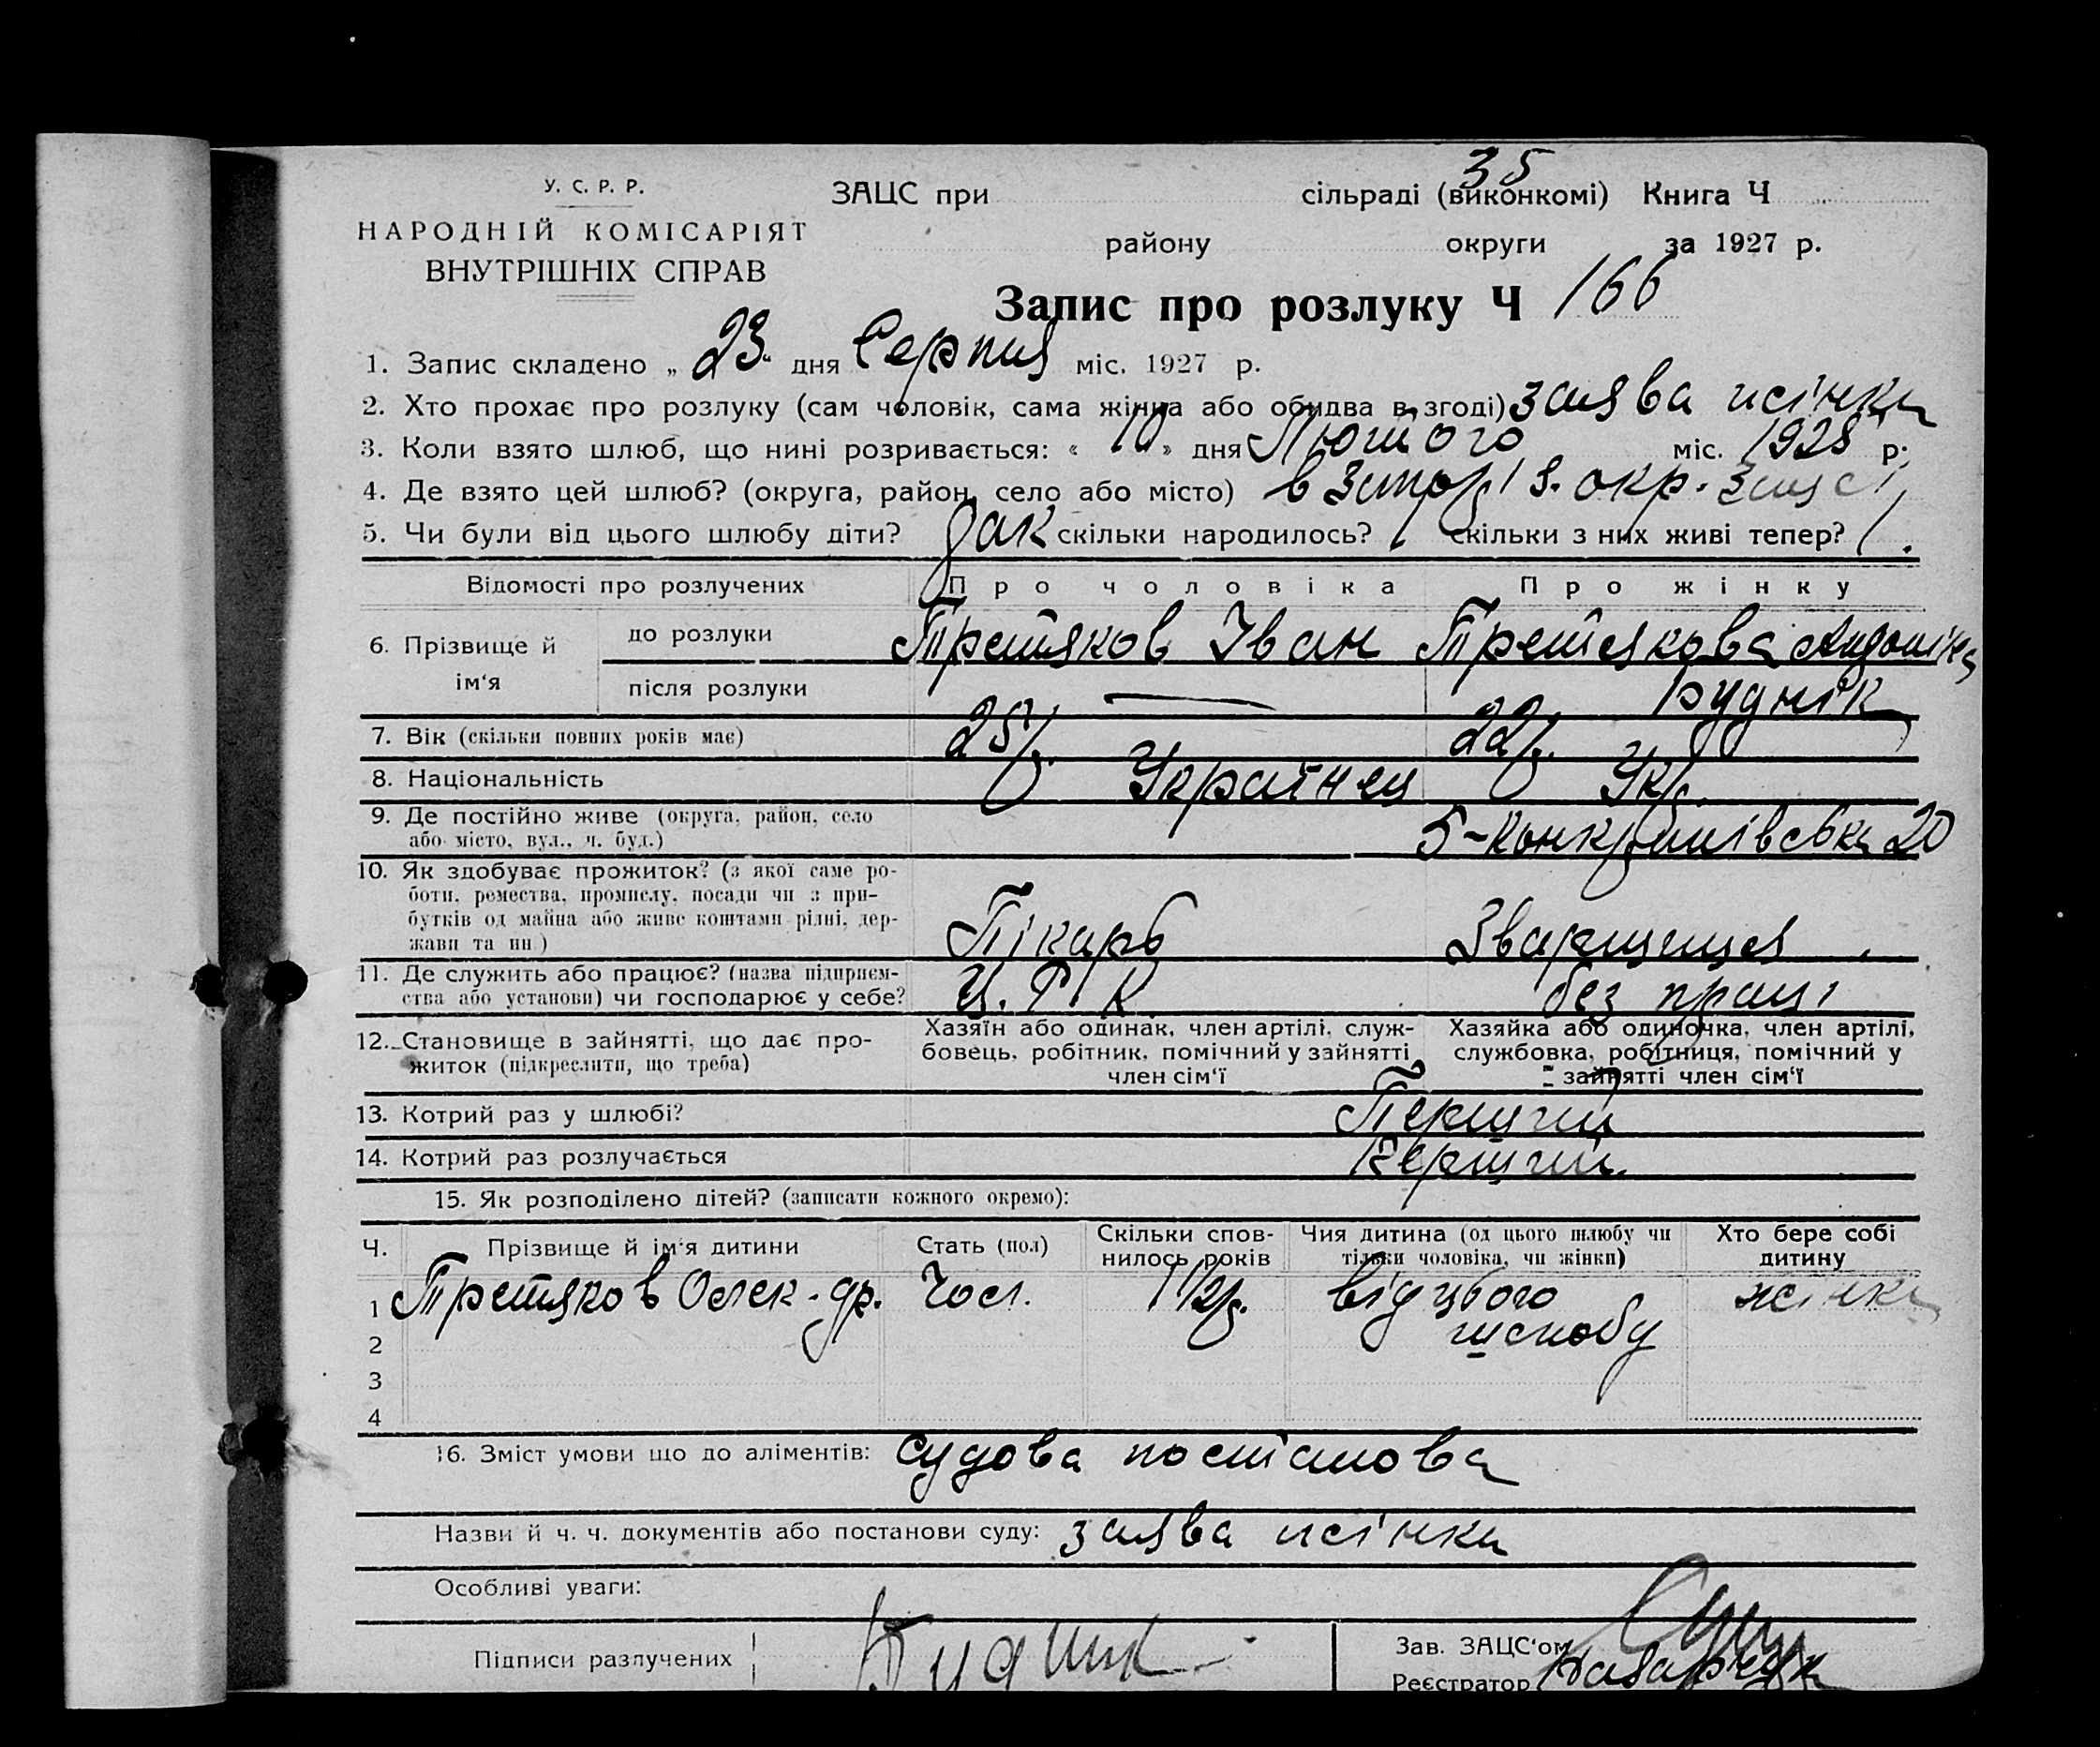 У. С. Р. Р.
НАРОДНІЙ КОМІСАРІЯТ
ВНУТРІШНІХ СПРАВ
35
ЗАЦС при сільраді (виконкомі) Книга Ч
району округи за 1927 р.
Запис про розлуку Ч 166
1. Запис складено „ 23 дня Серпня міс. 1927 р.
2. Хто прохає про розлуку (сам чоловік, сама жінка або обидва в згоді) заява жінки
3. Коли взято шлюб, що нині розривається: « 10 » дня Лютого міс. 1925 р.
4. Де взято цей шлюб? (округа, район, село або місто) в окр. зацсі
5. Чи були від цього шлюбу діти? так скільки народилось? 1 скільки з них живі тепер? 1.
Відомості про розлучених Про чоловіка Про жінку
6. Прізвище й ім‘я до розлуки Третяков Іван Третякова
після розлуки — Рудник
7. Вік (скільки повних років має) 25 р. 22 р.
8. Національність Українец Укр.
9. Де постійно живе (округа, район, село
або місто, вул., ч. буд.) 20
10. Як здобуває прожиток? (з якої саме ро-
боти, ремества, промислу, посади чи з при-
бутків од майна або живе коштами рідні, дер-
жави та ин) Пікарь
11. Де служить або працює? (назва підприєм-
ства або установи) чи господарює у себе? Ц. Р. К. без праці
12. Становище в зайнятті, що дає про-
житок (підкреслити, що треба)
Хазяїн або одинак, член артілі, служ-
бовець, робітник, помічний у зайнятті
член сім‘ї
Хазяйка або одиночка, член артілі,
службовка, робітниця, помічний у
зайнятті член сім‘ї
13. Котрий раз у шлюбі? Перший
14. Котрий раз розлучається Перший
15. Як розподілено дітей? (записати кожного окремо):
Ч. Прізвище й ім‘я дитини Стать (пол) Скільки спов-
нилось років Чия дитина (од цього шлюбу чи
тільки чоловіка, чи жінки) Хто бере собі
дитину
1 Третяков Олек-др. Чол. 1 1/2 р. від цього
шлюбу жінка
2
3
4
16. Зміст умови що до аліментів: судова постанова
Назви й ч. ч. документів або постанови суду: заява жінки
Особливі уваги:
Підписи разлучених Рудник
Зав. ЗАЦС‘ом
Реєстратор